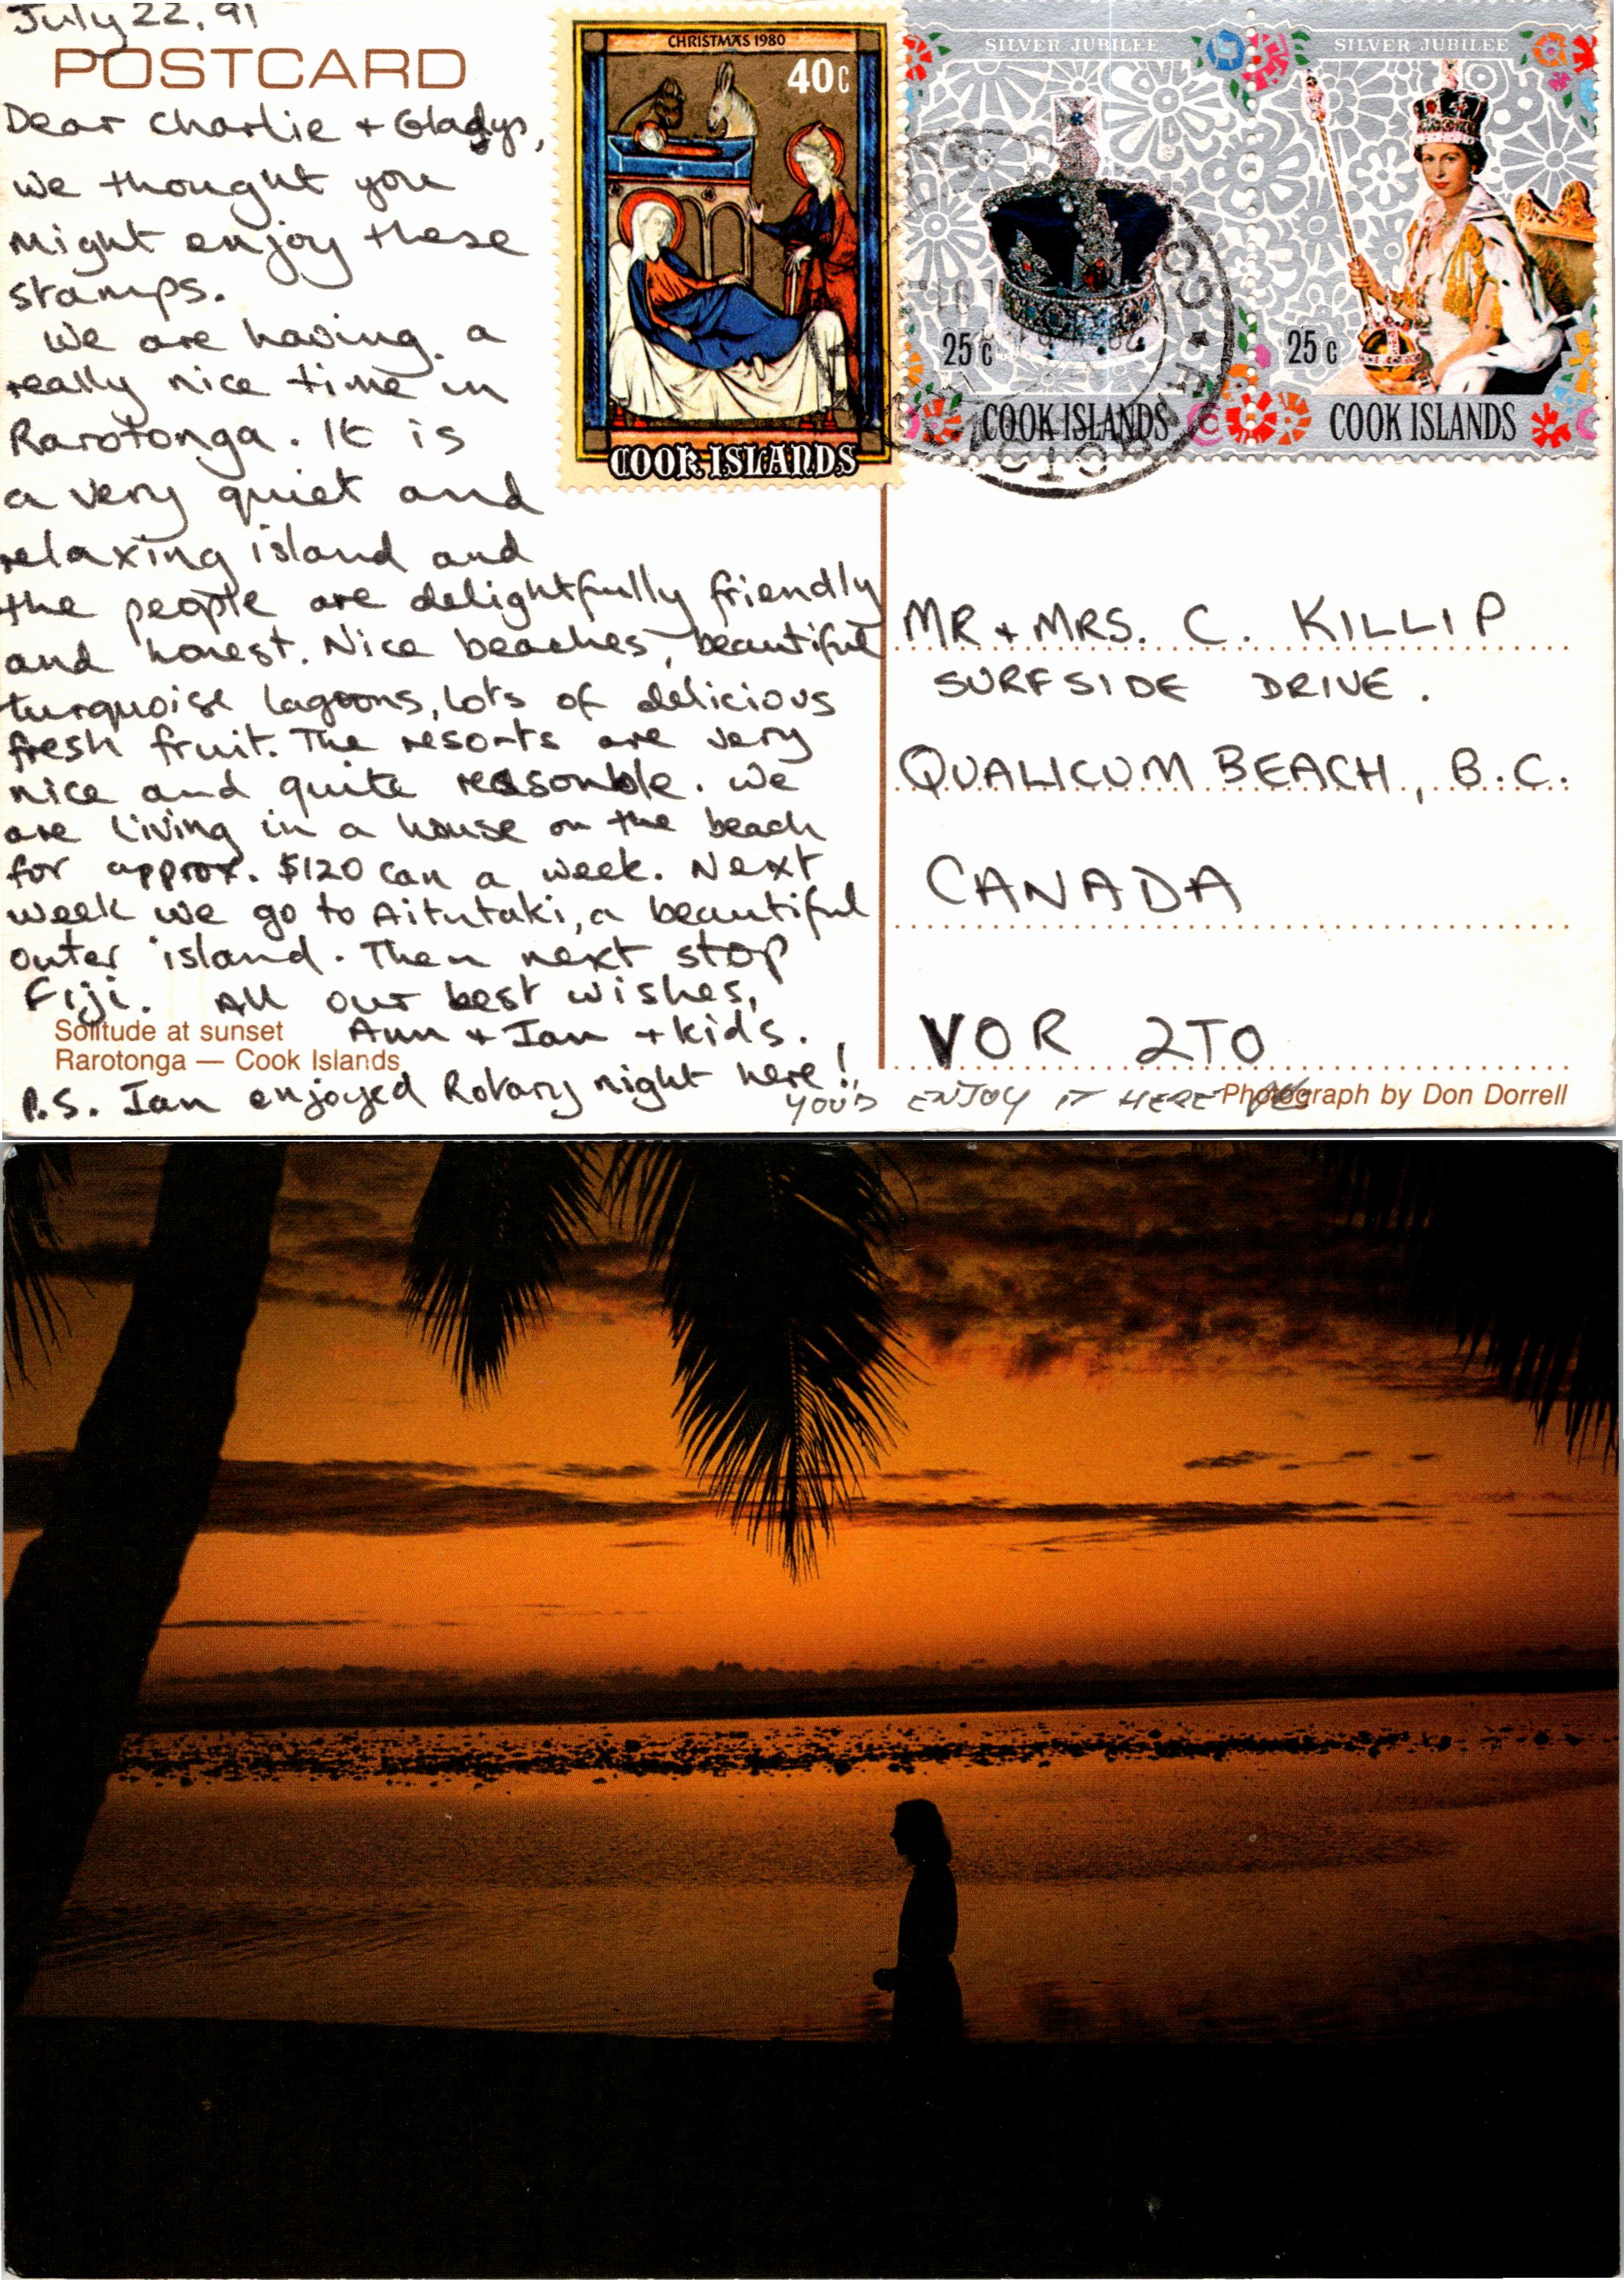 July 22, 91
POSTCARD
Dear Charlie + Gladys,
we thought you
might enjoy these
stamps.
We are having a
really nice time in
Rarotonga. It is
a very quiet and
relaxing island and
the people are delightfully friendly
and honest. Nice beaches, beautiful
turquoise lagoons, lots of delicious
fresh fruit. The resorts are very
nice and quite reasonble. We
are living in a house on the beach
for approx. $120 can a week. Next
week we go to Aitutaki, a beautiful
outer island. Then next stop
Fiji. All our best wishes,
Ann + Ian + kids.
Solitude at sunset
Rarotonga — Cook Islands
P.S. Ian enjoyed Rotary night here!
YOU'D ENJOY IT HERE
CHRISTMAS 1980
40c
COOK ISLANDS
SILVER JUBILEE
25c
COOK ISLANDS
SILVER JUBILEE
25c
COOK ISLANDS
MR + MRS. C. KILLIP
SURFSIDE DRIVE.
QUALICUM BEACH, B.C.
CANADA
VOR 2TO
Photograph by Don Dorrell